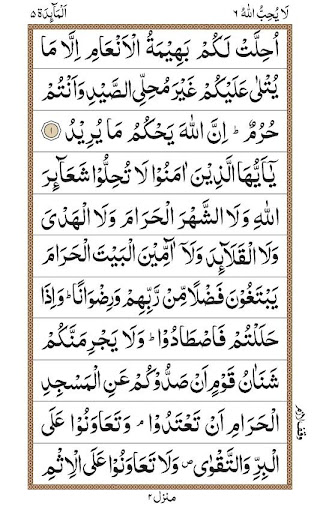 لَا يُحِبُّ اللهُ ٦ اَلْمَآئِدَة ٥
اُحِلَّتْ لَكُمْ بَهِيْمَةُ الْاَنْعَامِ اِلَّا مَا
يُتْلٰى عَلَيْكُمْ غَيْرَ مُحِلِّى الصَّيْدِ وَاَنْتُمْ
حُرُمٌ ؕ اِنَّ اللّٰهَ يَحْكُمُ مَا يُرِيْدُ ۝۱
يٰۤاَيُّهَا الَّذِيْنَ اٰمَنُوْا لَا تُحِلُّوْا شَعَآئِرَ
اللّٰهِ وَلَا الشَّهْرَ الْحَرَامَ وَلَا الْهَدْىَ
وَلَا الْقَلَآئِدَ وَلَاۤ آٰمِّيْنَ الْبَيْتَ الْحَرَامَ
يَبْتَغُوْنَ فَضْلًا مِّنْ رَّبِّهِمْ وَرِضْوَانًا ؕ وَاِذَا
حَلَلْتُمْ فَاصْطَادُوْا ؕ وَلَا يَجْرِمَنَّكُمْ
شَنَاٰنُ قَوْمٍ اَنْ صَدُّوْكُمْ عَنِ الْمَسْجِدِ
الْحَرَامِ اَنْ تَعْتَدُوْا ۘ وَتَعَاوَنُوْا عَلَى
الْبِرِّ وَالتَّقْوٰى ۪ وَلَا تَعَاوَنُوْا عَلَى الْاِثْمِ
وقف لازم
منزل ٢